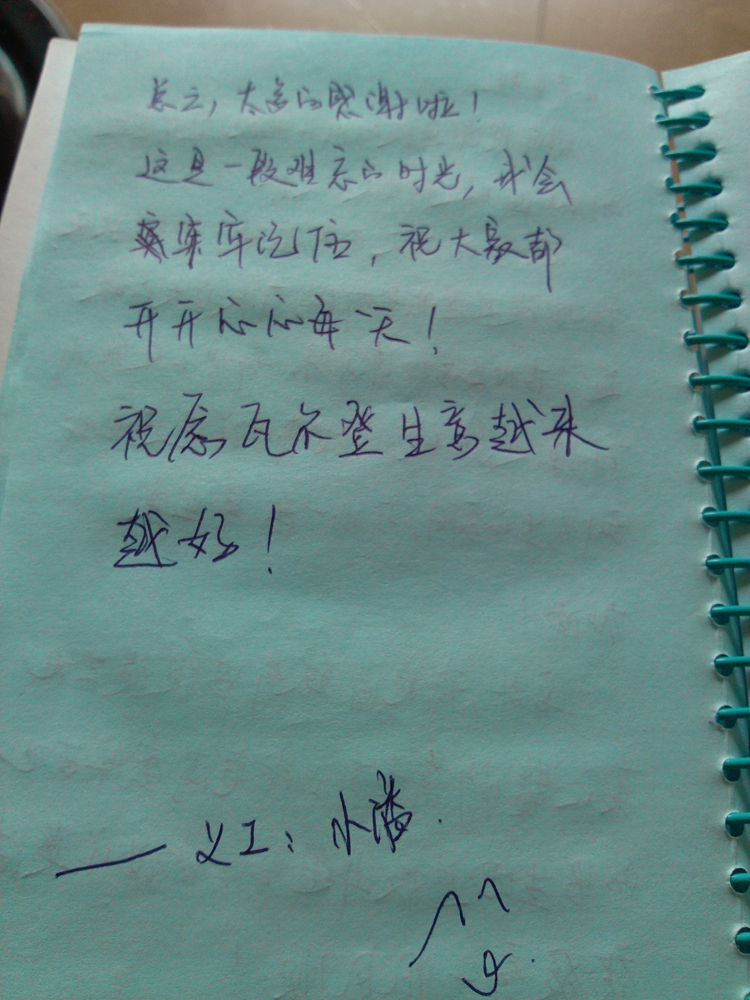 总之，太多的感谢啦！
这是一段难忘的时光，我会
牢牢记住，祝大家都
开开心心每一天！
祝愿瓦尔登生意越来
越好！
—— 义工：小潘.